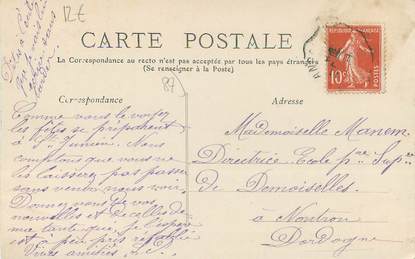 12€
CARTE POSTALE
La Correspondance au recto n'est pas acceptée par tous les pays étrangers
(Se renseigner à la Poste)
RÉPUBLIQUE FRANÇAISE
10c
POSTES
87
Correspondance
Comme vous le voyez
les fêtes se préparent
à St Junien. Nous
comptons que vous ne
les laisserez pas passer
sans venir nous voir.
Donnez nous de vos
nouvelles et de celles de
ma tante que, je l'espère
est à peu près rétablie
Vives amitiés
Adresse
Mademoiselle Manem
Directrice Ecole pre Supre
de Demoiselles.
à Nontron
Dordogne